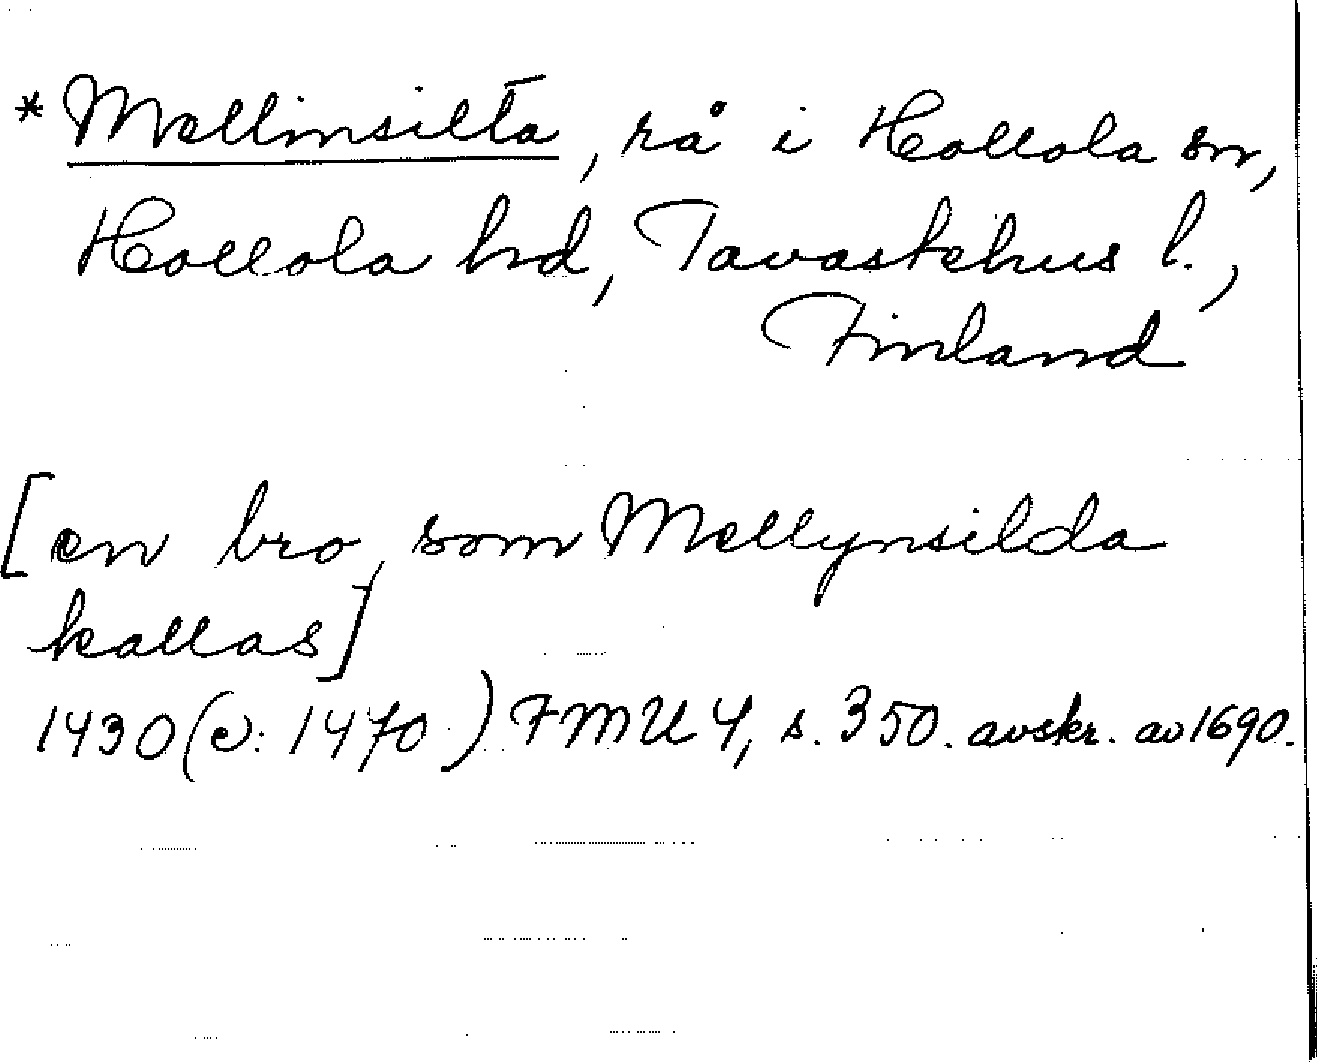 * Mellinsilta, rå i Hollola sn,
Hollola hd, Tavastehus l.,
Finland
[en bro som Mellynsilda
kallas]
1430 (c: 1470) FMU 4, s. 350. avskr. av 1690.